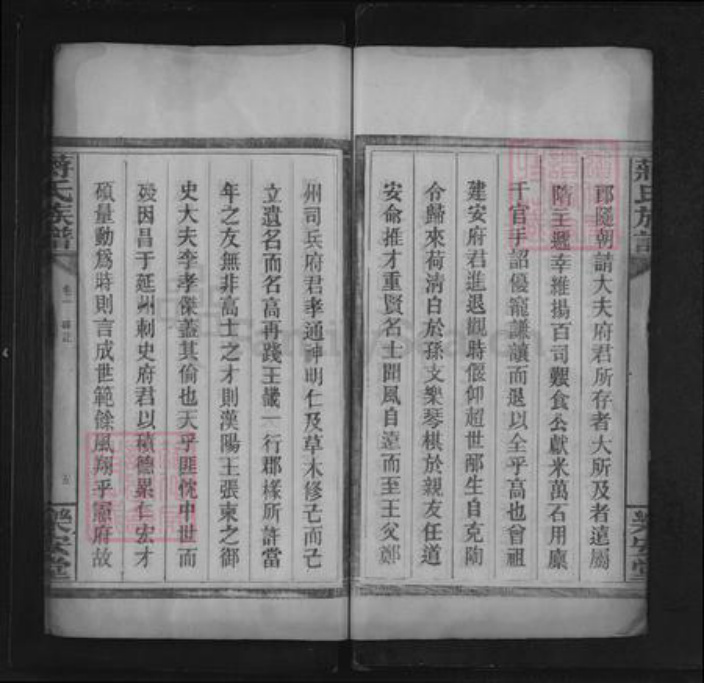 郎隨朝請大夫府君所存者大所及者遠屬
隋王遜幸維揚百司艱食公獻米萬石用廩
千官手詔優寵謙讓而退以全乎高也曾祖
建安府君進退觀時偃仰超世酈生自克陶
令歸來荷清白於孫文樂琴棋於親友任道
安命推才重賢名士聞風自遠而至王父鄭
州司兵府君孝通神明仁及草木修己而己
立遺名而名高再踐王畿一行郡椽所許當
年之友無非高士之才則漢陽王張柬之御
史大夫李孝傑蓋其倫也天乎匪忱中世而
歿因昌于延州刺史府君以積德累仁宏才
碩量動爲時則言成世範餘風翔乎憲府故
蔣氏族譜
卷一
五
樂安堂